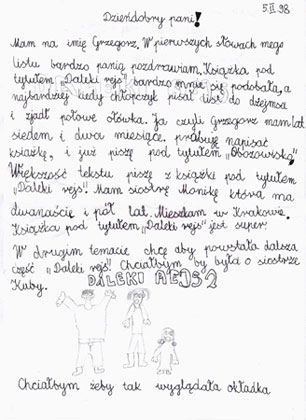 5 II 98
Dzieńdobry pani!
Mam na imię Grzegorz. W pierwszych słowach mego
listu bardzo panią pozdrawiam. Książka pod
tytułem „Daleki rejs” bardzo mnie się podobała, a
najbardziej kiedy chłopczyk pisał list do dżejmsa
i zjadł połowe ołówka. Ja czyli Grzegorz mam lat
siedem i dwa miesiące. próbuję napisać
książkę, i już piszę pod tytułem „Obozowisko”
Większość tekstu piszę z książki pod tytułem
„Daleki rejs”. Mam siostrę Monikę która ma
dwanaście i pół lat. Mieszkam w Krakowie.
Książka pod tytułem „Daleki rejs” jest super
W drugim temacie chcę aby powstała dalsza
część „Daleki rejs”. Chciałbym by była o siostrze
Kuby.
DALEKI REJS 2
Chciałbym żeby tak wyglądała okładka